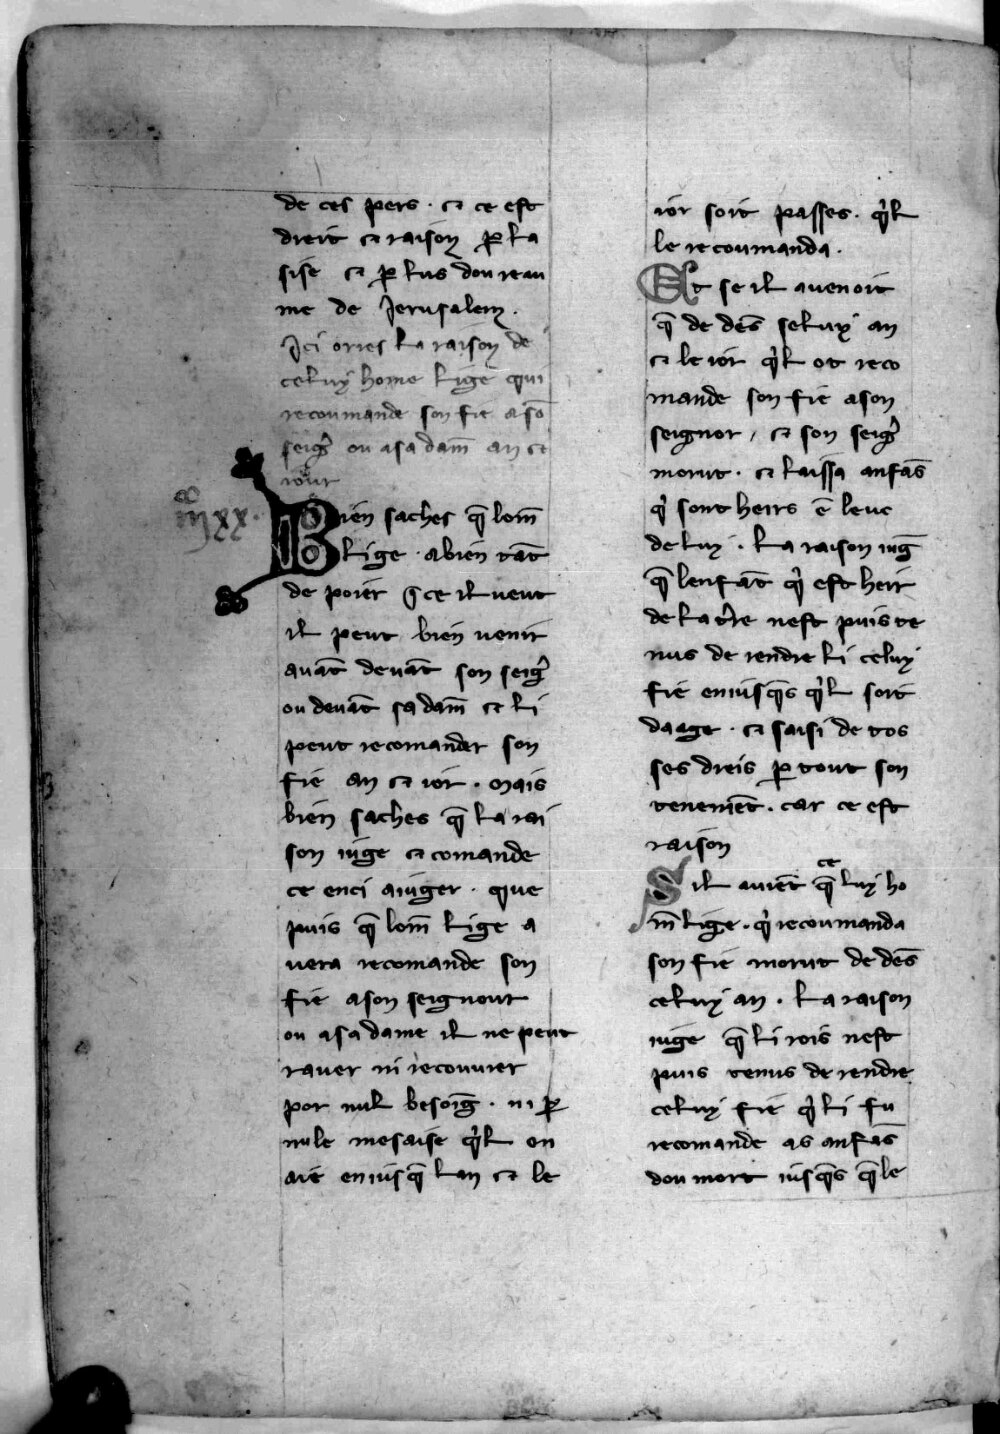 de ces pers · ⁊ ce est
dreit ⁊ raison p̲ la
sise ⁊ p̲ lus dou reau
me de Jerusalem .
Ici orres la raison de
celuy home lige qui
recoumande son fie a sō
seigr̄ ou a sa dam̄ an ⁊
iour
iiijxx ·
Bien saches q̄ lom̄
lige · a bien tāt
de poier q̄ ce il veut
il peut bien venir
auāt deuāt son seigr̄
ou deuāt sa dam̄ ⁊ li
peut recomander son
fie an ⁊ ior · mais
bien saches q̄ la rai
son iuge ⁊ comande
ce enci a iuger · que
puis q̄ lom̄ lige a
uera recomande son
fie a son seignour
ou a sa dame il ne peut
rauer ni recouurer
por nul besoīg · ni p̲
nule mesaise qͥl en
aie en iusq̄ lan ⁊ le
ior soit passes · qͥl
le recoumanda ·
Et se il auenoit
q̄ de dēs seluy an
⁊ le ior qͥl ot reco
mande son fie a son
seignor / ⁊ son seigr̄
morut · ⁊ laissa anfās
qͥ sont heirs ē leuc
de luy · la raison iuḡ
q̄ lenfāt qͥ est heir
de la tr̄re nest puis te
nus de rendre li celuy
fie en iusq̄s qͥl soit
daage · ⁊ saisi de tos
ses dreis p̲ tout son
tenemēt · car ce est
raison
Sil auiēt q̄ ce luy ho
m̄ lige · qͥ recoumanda
son fie morut de dēs
celuy an · la raison
iuge q̄ li rois nest
puis tenus de rendre
celuy fie qͥ li fu
recomande as anfās
dou mort iusq̄s q̄ le